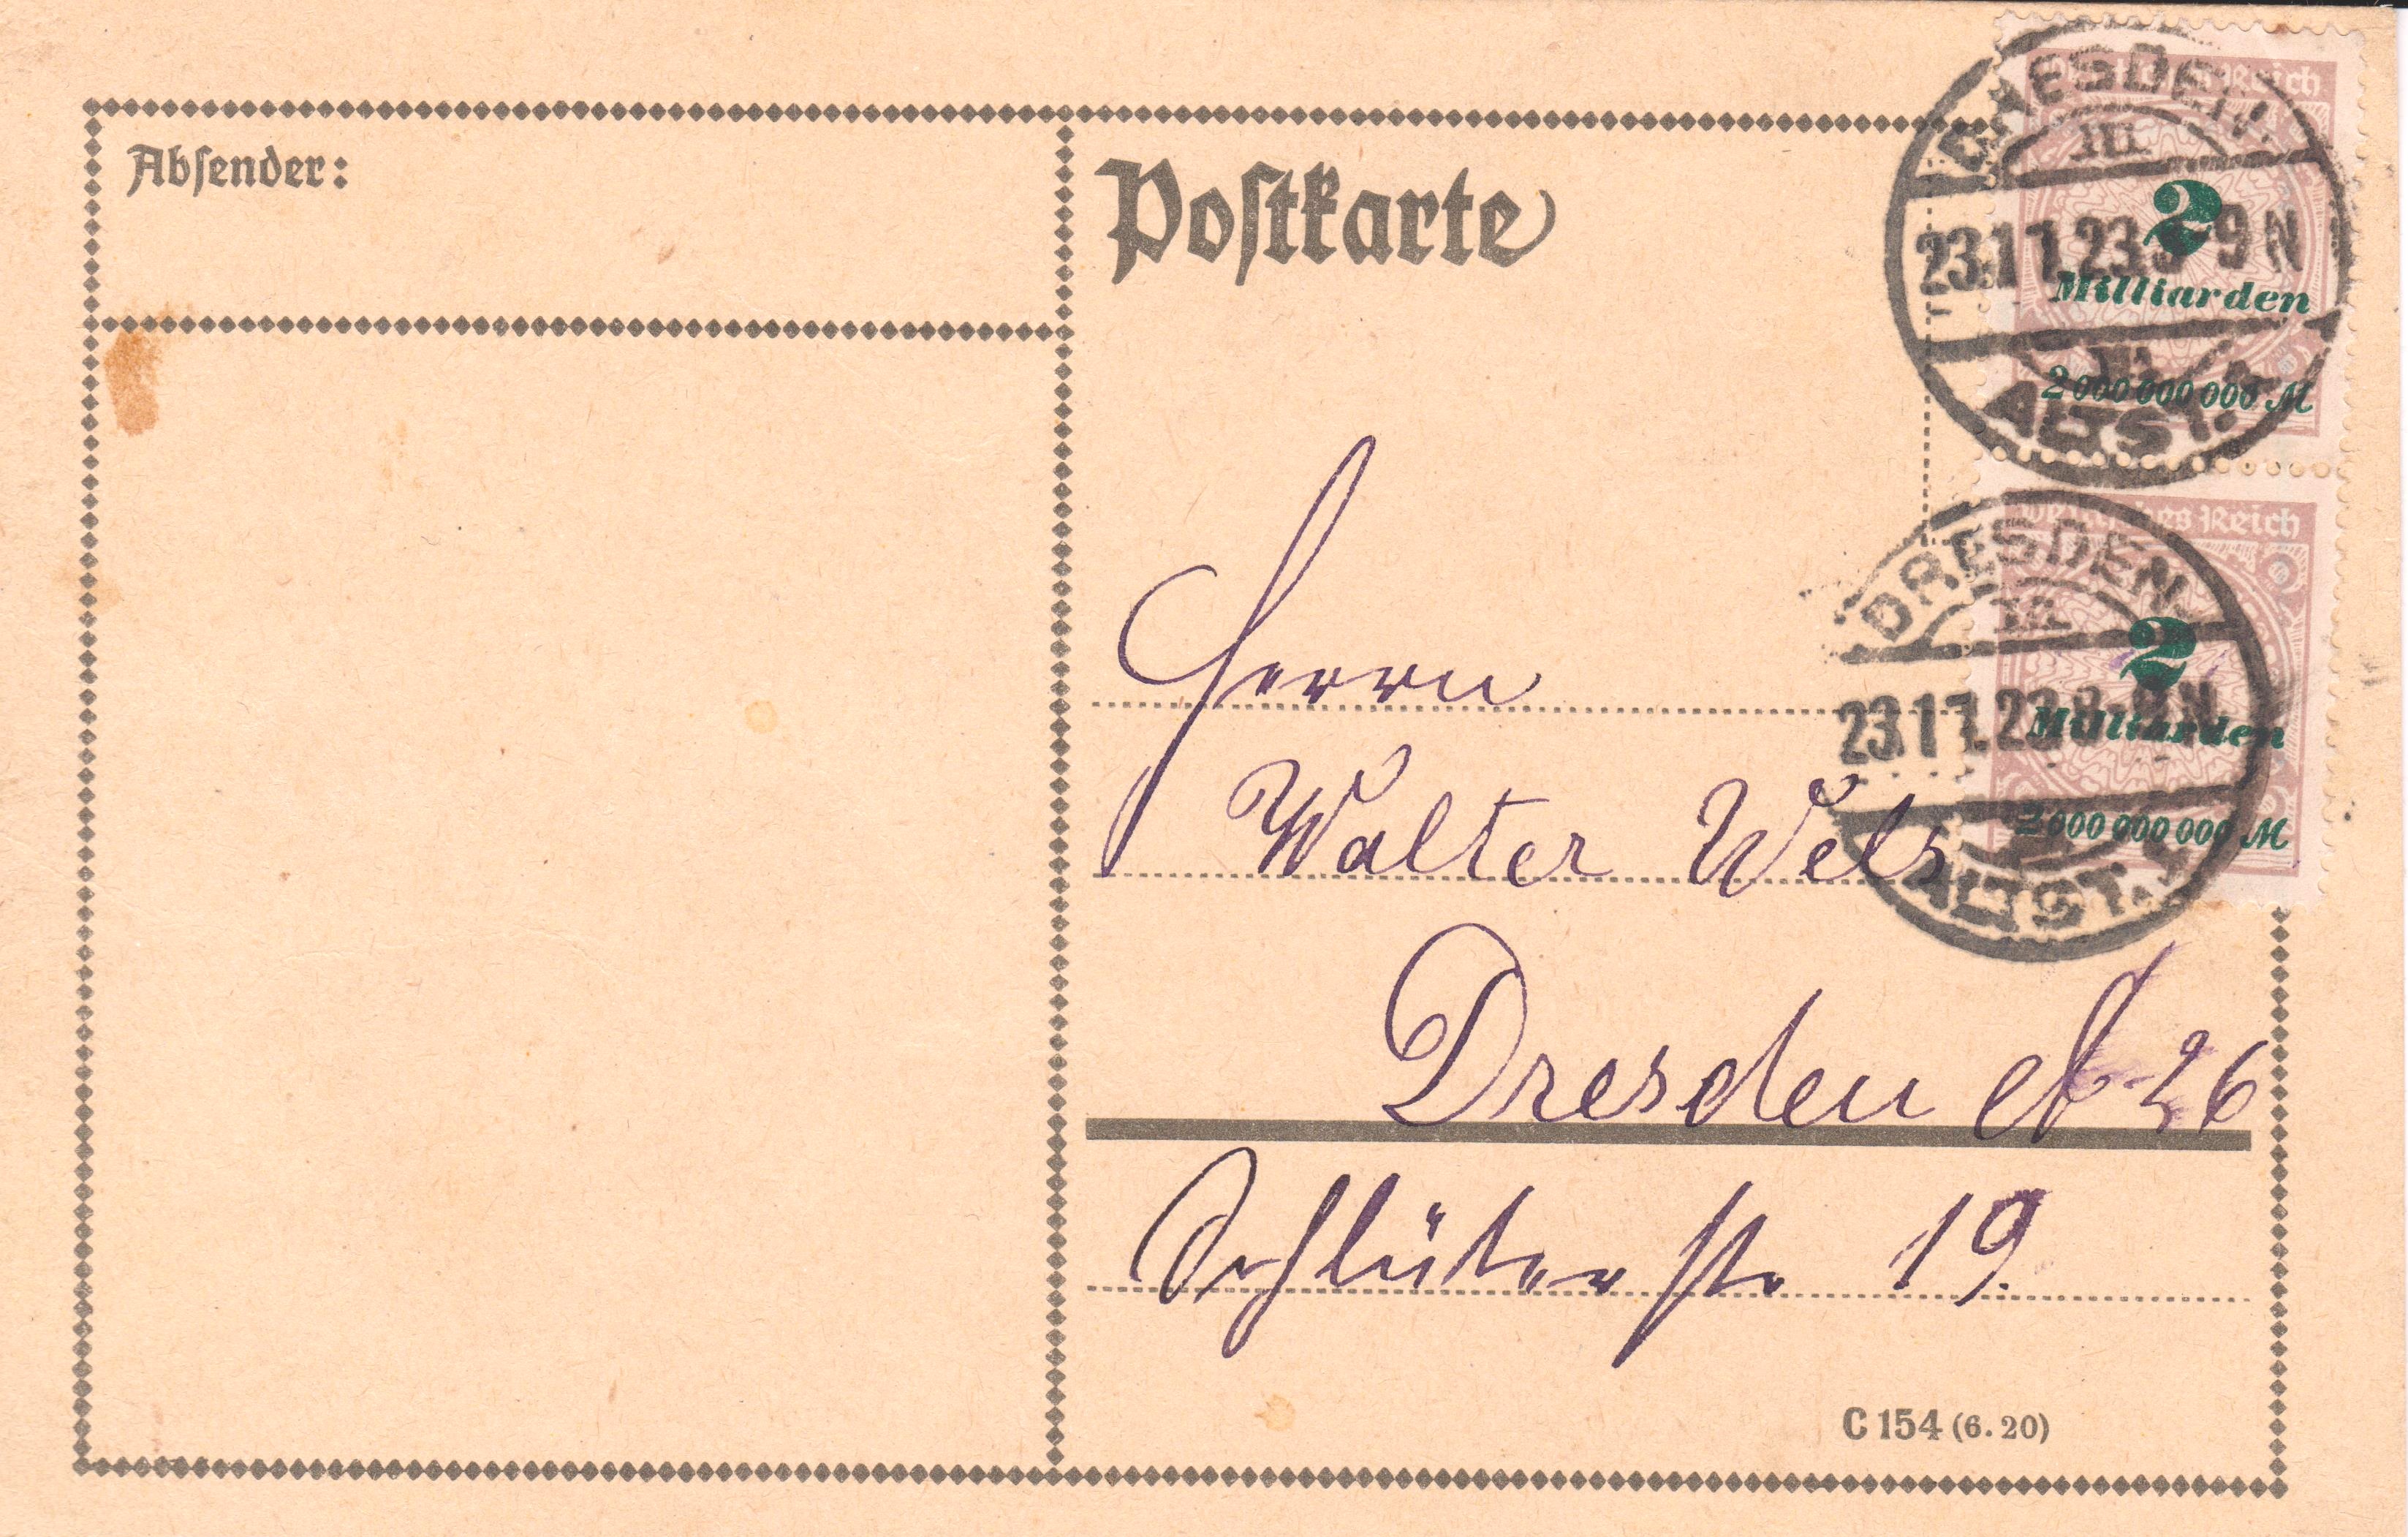 Absender:
Postkarte
Deutsches Reich
2
Milliarden
2 000 000 000 M
DRESDEN
23.11.23. 8-9 N
ALTST.
Deutsches Reich
2
Milliarden
2 000 000 000 M
DRESDEN
23.11.23. 8-9 N
ALTST.
Herrn
Walter Wels
Dresden A 26
Schlüterstr 19.
C 154 (6. 20)